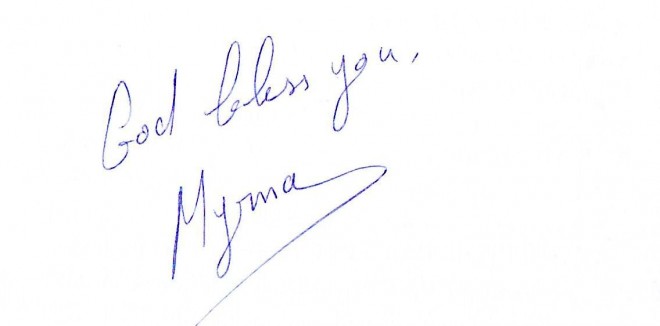 God bless you.
Myrna